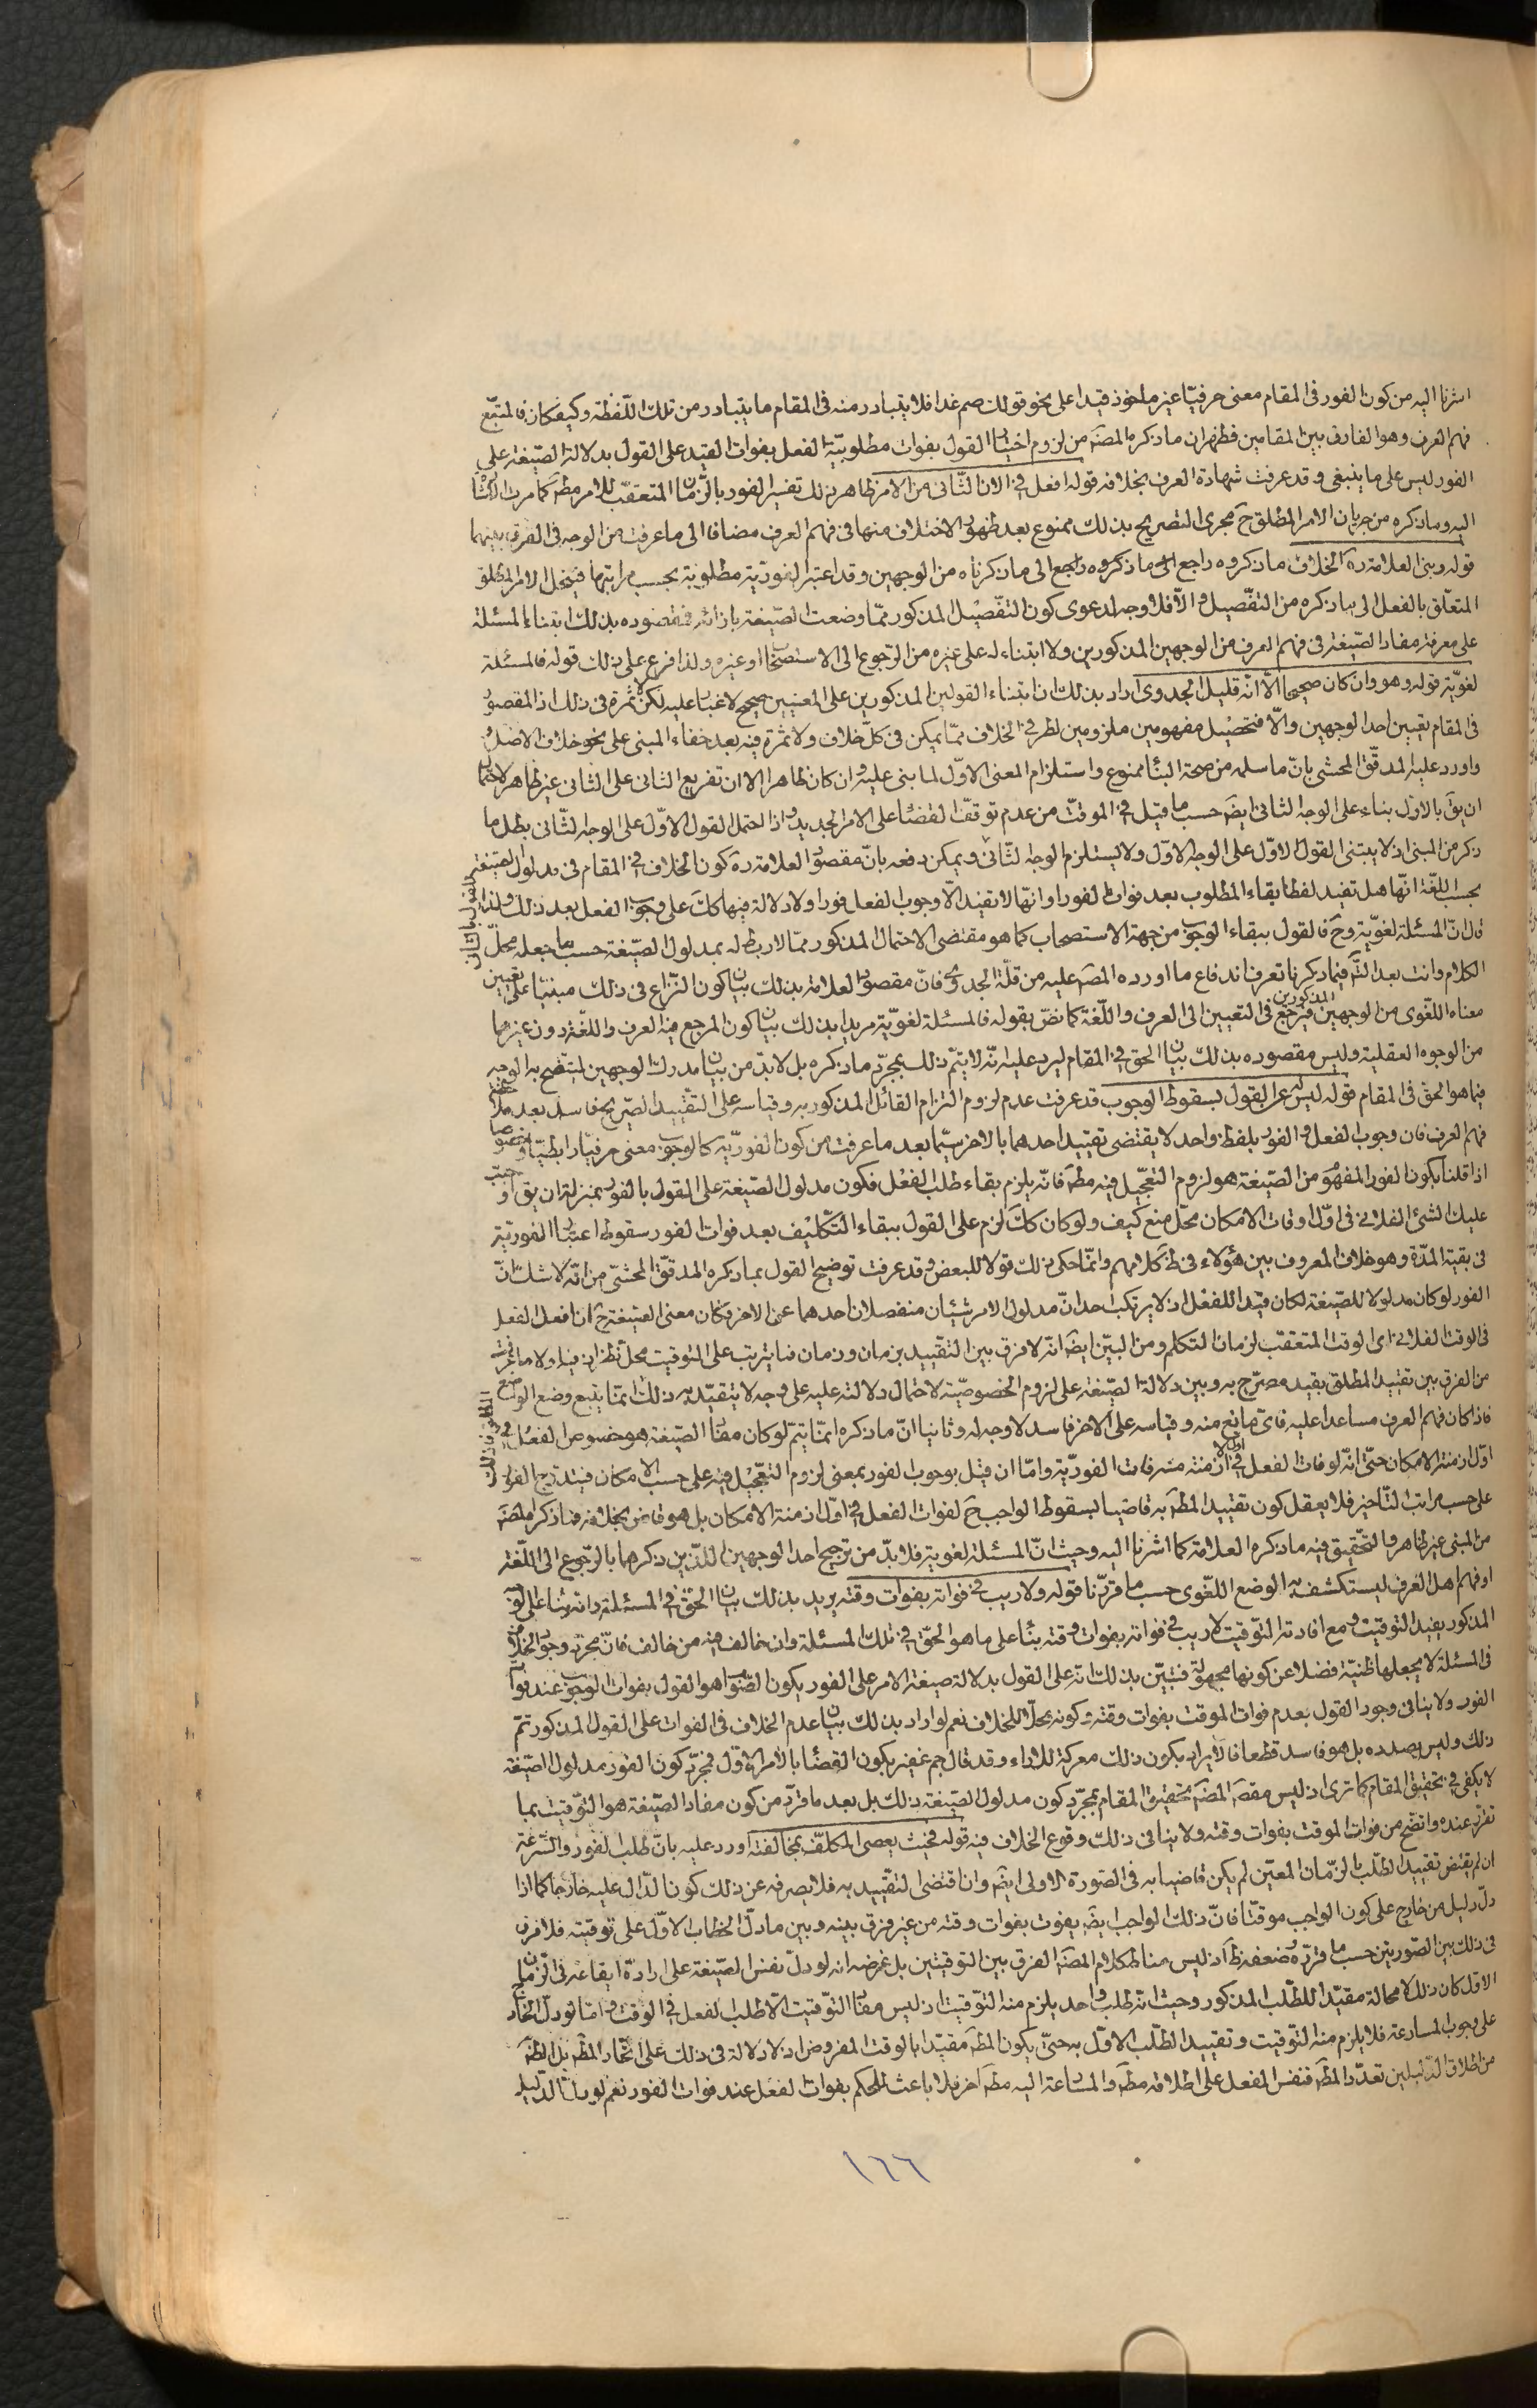 اشرنا اليه من كون الفور فى المقام معنى حرفيّا غير ملحوظ قيدا على نحو قولك صم غدا فلا يتبادر منه فى المقام ما يتبادر من تلك اللّفظة وكيف كان فالمتبّع
فهم العرف وهو الفارق بين المقامين فظهر ان ما ذكره المصنّف من لزوم اختيار القول بفوات مطلوبيّة الفعل بفوات القيد على القول بدلالة الصّيغة على
الفور ليس على ما ينبغى وقد عرفت شهادة العرف بخلافه قوله افعل فى الان الثّانى من الامر ظاهر ذلك تفسير الفور بالزّمان المتعقّب للامر مطلقا كما مرت الاشارة
اليه وما ذكره من جريان الامر المطلق ح مجرى التصريح بذلك ممنوع بعد ظهور الاختلاف منها فى فهم العرف مضافا الى ما عرفت من الوجه فى الفرق بينهما
قوله وبنى العلامة ره الخلاف ما ذكروه راجع الى ما ذكروه راجع الى ما ذكرناه من الوجهين وقد اعتبر الفوريّة مطلوبية بحسب مراتبها فينحل الامر المطلق
المتعلّق بالفعل الى ما ذكره من التفصيل والّا فلا وجه لدعوى كون التفصيل المذكور ممّا وضعت الصّيغة بازائه فمقصوده بذلك ابتناء المسئلة
على معرفة مفاد الصّيغة فى فهم العرف من الوجهين المذكورين ولا ابتناء له على غيره من الرّجوع الى الاستصحاب او غيره ولذا فرع على ذلك قوله فالمسئلة
لغويّة قوله وهو وان كان صحيحا الّا انّه قليل الجدوى اراد بذلك ان ابتناء القولين المذكورين على المعنيين صحيح لا غبار عليه لكن لا ثمرة فى ذلك اذ المقصود
فى المقام تعيين احد الوجهين والّا فتحصيل مفهومين ملزومين لطرفى الخلاف ممّا يمكن فى كلّ خلاف ولا ثمرة فيه بعد خفاء المبنى على نحو خلاف الاصل
واورد عليه المدقّق المحشى بانّ ما سلمه من صحة البناء ممنوع واستلزام المعنى الاوّل لما بنى عليه وان كان ظاهرا الا ان تفريع الثانى على الثانى غير ظاهر لاحتمال
ان يق بالاوّل بناء على الوجه الثانى ايضا حسب ما قيل فى الموقت من عدم توقف القضاء على الامر الجديد واذا احتمل القول الاوّل على الوجه الثّانى بطل ما
ذكر من المبنى اذ لا يبتنى القول الاوّل على الوجه الاوّل ولا يستلزم الوجه الثّانى ويمكن دفعه بانّ مقصود العلامة ره كون الخلاف فى المقام فى مدلول الصيغة
بحسب اللّغة انّها هل تفيد لفظا بقاء المطلوب بعد فوات الفور او انّها لا يفيد الّا وجوب الفعل فورا ولا دلالة فيها كك على وجوب الفعل بعد ذلك ولذا
قال انّ المسئلة لغويّة وح فالقول ببقاء الوجوب من جهة الاستصحاب كما هو مقتضى الاحتمال المذكور ممّا لا ربط له بمدلول الصّيغة حسب ما جعله محلّ
الكلام وانت بعد التّأمّل فيما ذكرنا تعرف اندفاع ما اورده المصنّف عليه من قلّة الجدوى فانّ مقصود العلامة بذلك بيان كون النّزاع فى ذلك مبنيّا على تعيين
معناه اللّغوى من الوجهين المذكورين فيرجع فى التعيين الى العرف واللّغة كما نصّ بقوله فالمسئلة لغويّة مريدا بذلك بيان كون المرجع فيه العرف واللّغة دون غيرهما
من الوجوه العقلية وليس مقصوده بذلك بيان الحق فى المقام ليرد عليه انّه لا يتمّ ذلك بمجرّد ما ذكره بل لا بدّ من بيان مدرك الوجهين ليتضح به الوجه
فيما هو الحق فى المقام قوله ليس له على القول بسقوط الوجوب قد عرفت عدم لزوم التزام القائل المذكور به وقياسه على التقييد الصّريح فاسد بعد ملاحظة
فهم العرف فان وجوب الفعل والفور بلفظ واحد لا يقتضى تقييد احدهما بالاخر سيّما بعد ما عرفت من كون الفوريّة كالوجوب معنى حرفيّا رابطيّا وخصوصا
اذا قلنا بكون الفور المفهوم من الصّيغة هو لزوم التعجيل فيه مطلقا فانّه يلزم بقاء طلب الفعل فكون مدلول الصّيغة على القول بالفور بمنزلة ان يق اوجبت
عليك الشئ الفلانى فى اوّل اوقات الامكان محلّ منع كيف ولو كان كك لزم على القول ببقاء التكليف بعد فوات الفور سقوط اعتبار الفوريّة
فى بقيّة المدّة وهو خلاف المعروف بين هؤلاء فى ظ كلامهم وانّما حكى ذلك قولا للبعض وقد عرفت توضيح القول بما ذكره المدقّق المحشّى من انّه لا شك انّ
الفور لو كان مدلولا للصّيغة لكان قيدا للفعل اذ لا يرتكب احد انّ مدلول الامر شيئان منفصلان احدهما عن الاخر وكان معنى الصّيغة ح ان افعل الفعل
فى الوقت الفلانى اى الوقت المتعقّب لزمان التكلم ومن البيّن ايضا انّه لا فرق بين التقييد بزمان وزمان فما يترتب على التوقيت محل نظر اذ فيه اولا ما عرفت
من الفرق بين تقييد المطلق بقيد مصرّح به وبين دلالة الصّيغة على لزوم الخصوصيّة لاحتمال دلالته عليه على وجه لا يتقيّد به ذلك انّما يتبع وضع الواضع
فاذا كان فهم العرف مساعدا عليه فاىّ مانع منه وقياسه على الاخر فاسد لا وجه له وثانيا انّ ما ذكره انّما يتمّ لو كان مفاد الصّيغة هو خصوص الفعل فى
اوّل ازمنة الامكان حتّى انّه لو فات الفعل فى اوّل الازمنة منه فات الفوريّة وامّا ان قيل بوجوب الفور بمعنى لزوم التعجيل فيه على حسب الامكان فيتدرّج الفور
على حسب مراتب التّاخير فلا يعقل كون تقييد المطلق به قاضيا بسقوط الواجب ح لفوات الفعل فى اوّل ازمنة الامكان بل هو قاض بخلافه فما ذكر المصنّف
من المبنى غير ظاهر فالتّحقيق فيه ما ذكره العلامة كما اشرنا اليه وحيث انّ المسئلة لغوية فلا بدّ من ترجيح احد الوجهين اللّذين ذكرهما بالرّجوع الى اللّغة
او فهم اهل العرف ليستكشف به الوضع اللّغوى حسب ما قرّرنا قوله ولا ريب فى فواته بفوات وقته يريد بذلك بيان الحق فى المسئلة وانه بناء على القول
المذكور يفيد التوقيت ومع افادته التوقيت لا ريب فى فواته بفوات وقته بناء على ما هو الحق فى تلك المسئلة وان خالف فيه من خالف فانّ مجرّد وجود الخلاف
فى المسئلة لا يجعلها ظنيّة فضلا عن كونها مجهولة فتبيّن بذلك انّه على القول بدلالة صيغة الامر على الفور يكون الصّواب هو القول بفوات الوجوب عند فوات
الفور ولا ينافى وجود القول بعدم فوات الموقت بفوات وقته وكونه محلّا للخلاف نعم لو اراد بذلك بيان عدم الخلاف فى الفوات على القول المذكور تمّ
ذلك وليس بصدده بل هو فاسد قطعا فالايراد بكون ذلك معركة للاراء وقد قال جم غفير بكون القضاء بالامر الاوّل فمجرّد كون الفور مدلول الصّيغة
لا يكفى فى تحقيق المقام كما ترى اذ ليس مقصود المصنّف تحقيق المقام بمجرّد كون مدلول الصّيغة ذلك بل بعد ما قرّر من كون مفاد الصّيغة هو التّوقيت بما
تقرّر عنده واتضح من فوات الموقت بفوات وقته ولا ينافى ذلك وقوع الخلاف فيه قوله فحيث يعصى المكلّف بمخالفته اورد عليه بانّ طلب الفور والسّرعة
ان لم يقتض تقييد الطّلب بالزّمان المعيّن لم يكن قاضيا به فى الصّورة الاولى ايضا وان اقتضى التقييد به فلا يصرفه عن ذلك كون الدّال عليه خارجا كما اذا
دلّ دليل من خارج على كون الواجب موقتا فانّ ذلك الواجب ايضا يفوت بفوات وقته من غير فرق بينه وبين ما دلّ الخطاب الاوّل على توقيته فلا فرق
فى ذلك بين الصّورتين حسب ما قرّره وضعفه ظ اذ ليس مناط كلام المصنّف الفرق بين التوقيتين بل غرضه انه لو دلّ نفس الصّيغة على ارادة ايقاعه فى الزّمان
الاوّل كان ذلك لا محالة مقيّدا للطّلب المذكور وحيث انّه طلب واحد يلزم منه التّوقيت اذ ليس مفاد التّوقيت الّا طلب الفعل فى الوقت وامّا لو دلّ الخارج
على وجوب المسارعة فلا يلزم منه التّوقيت وتقييد الطّلب الاوّل به حتّى يكون المطلق مقيّدا بالوقت المفروض اذ لا دلالة فى ذلك على اتّحاد المطلوب بل الظ
من اطلاق الدّليلين تعدّد المطلوب فنفس الفعل على اطلاقه مطلوب والمسارعة اليه مطلوب اخر فلا باعث للحكم بفوات الفعل عند فوات الفور نعم لو
١٦٦